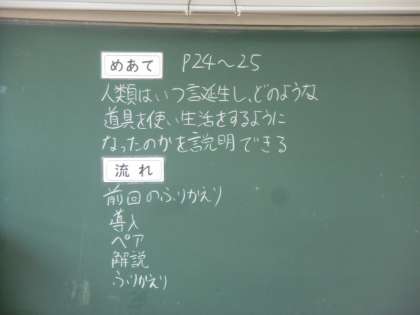 めあて P24〜25
人類はいつ誕生し、どのような
道具を使い生活をするように
なったのかを説明できる
流れ
前回のふりかえり
導入
ペア
解説
ふりかえり